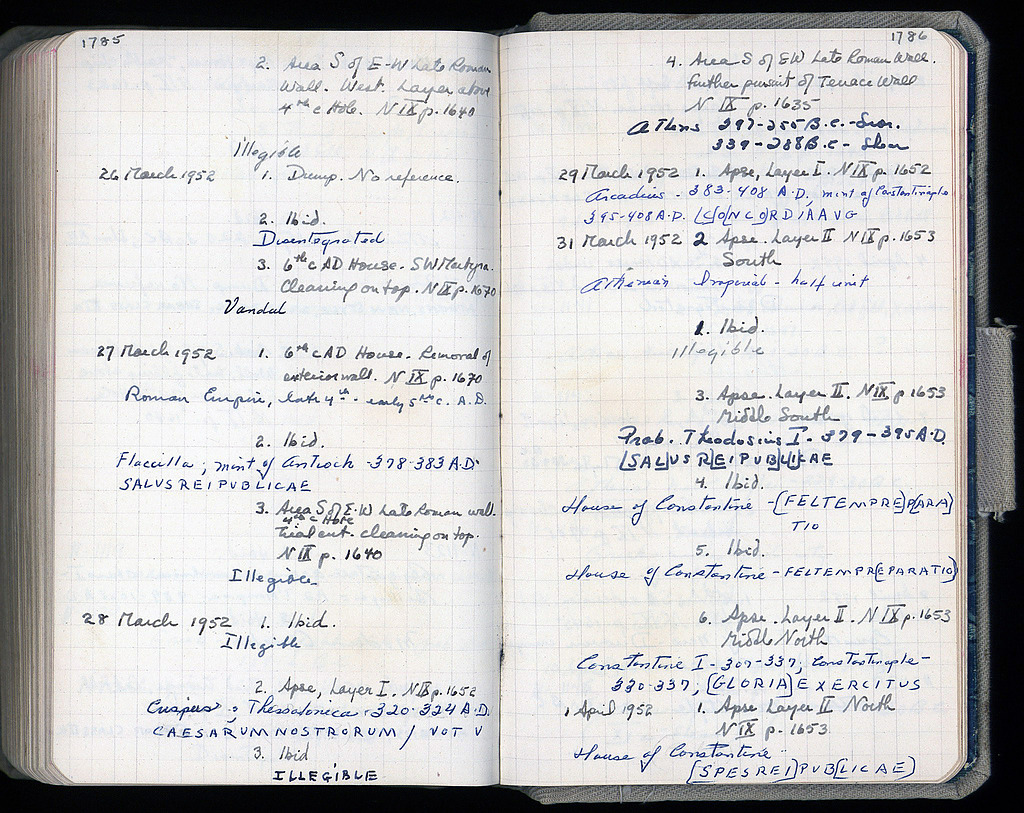 1785
2. Area S of E-W Late Roman
Wall. West. Layer above
4th c Hole. N IX p. 1640
Illegible
26 March 1952 1. Dump. No reference.
2. Ibid.
Disentegrated
3. 6th c AD House. SW Martyra.
Cleaning on top. N IX p. 1670
Vandal
27 March 1952 1. 6th c AD House. Removal of
exterior wall. N IX p. 1670
Roman Empire, late 4th - early 5th c. A.D.
2. Ibid.
Flaccilla; mint of Antioch - 378-383 A.D.
SALVS REI PVBLICAE
3. Area S of E-W Late Roman wall.
4th c Hole
trial cut. cleaning on top.
N IX p. 1640
Illegible
28 March 1952 1. Ibid.
Illegible
2. Apse, Layer I. N IX p. 1652
Crispus; Thessalonica - 320-324 A.D.
CAESARUM NOSTRORUM / VOT V
3. Ibid
ILLEGIBLE
1786
4. Area S of EW Late Roman Wall.
further pursuit of Terrace Wall
N IX p. 1635
Athens 297-255 B.C. -
339-288 B.C. -
29 March 1952 1. Apse, Layer I. N IX p. 1652
Arcadius - 383-408 A.D., mint of Constantinople
395-408 A.D. [C]O[NC]O[RDIA AVG
31 March 1952 2 Apse. Layer II N IX p. 1653
South
Athenian Imperial - half unit
1. Ibid.
Illegible
3. Apse. Layer II. N IX p 1653
Middle South
Prob. Theodosius I - 379-395 A.D.
[SAL]VS R[E]I PVB[LI]CAE
4. Ibid.
House of Constantine - [FEL TEMP RE]P[ARA]
TIO
5. Ibid.
House of Constantine - FEL TEMP R[EPARATIO]
6. Apse. Layer II. N IX p. 1653
Middle North
Constantine I - 307-337; Constantinople -
330-337; [GLORIA] EXERCITUS
1 April 1952 1. Apse Layer II North
N IX p. 1653
House of Constantine
[SPES REI] PVB[LICAE]